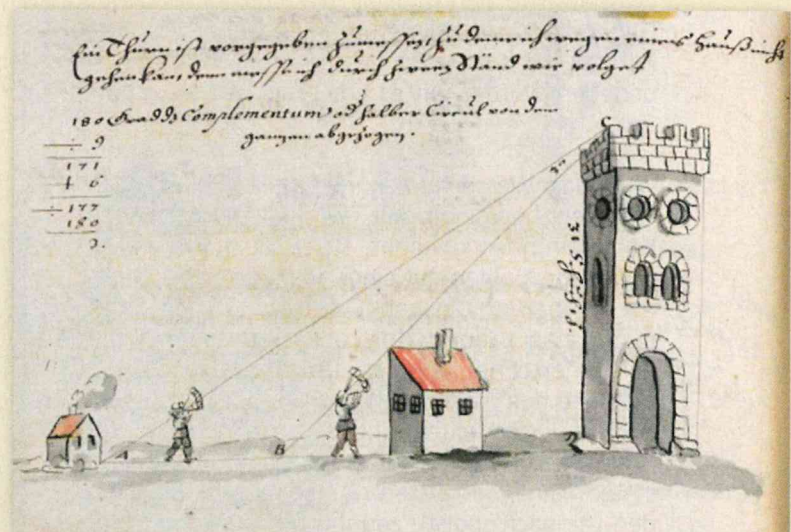 Ein Thurn ist vorgegeben zumessen, zu deme ich wegen eines Hauß nicht
gehen kan, dem mess ich durch zween Ständ wie volget
180 Gradds Complementum od halber Circul von dem
ganzen abgezogen.
÷ 9
171
+ 6
÷ 177
180
3.
C
31
A
B